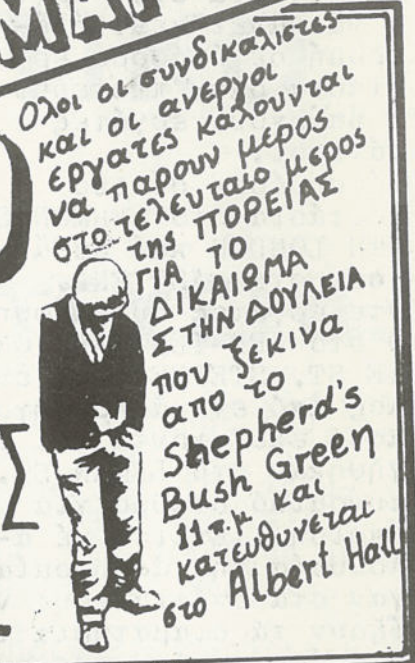 ΜΑΪ
Ολοι οι συνδικαλιστες
και οι ανεργοι
εργατες καλουνται
να παρουν μερος
στο τελευταιο μερος
της ΠΟΡΕΙΑΣ
ΓΙΑ ΤΟ
ΔΙΚΑΙΩΜΑ
ΣΤΗΝ ΔΟΥΛΕΙΑ
που ξεκινα
απο το
Shepherd's
Bush Green
11 π.μ. και
κατευθυνεται
στο Albert Hall
Σ